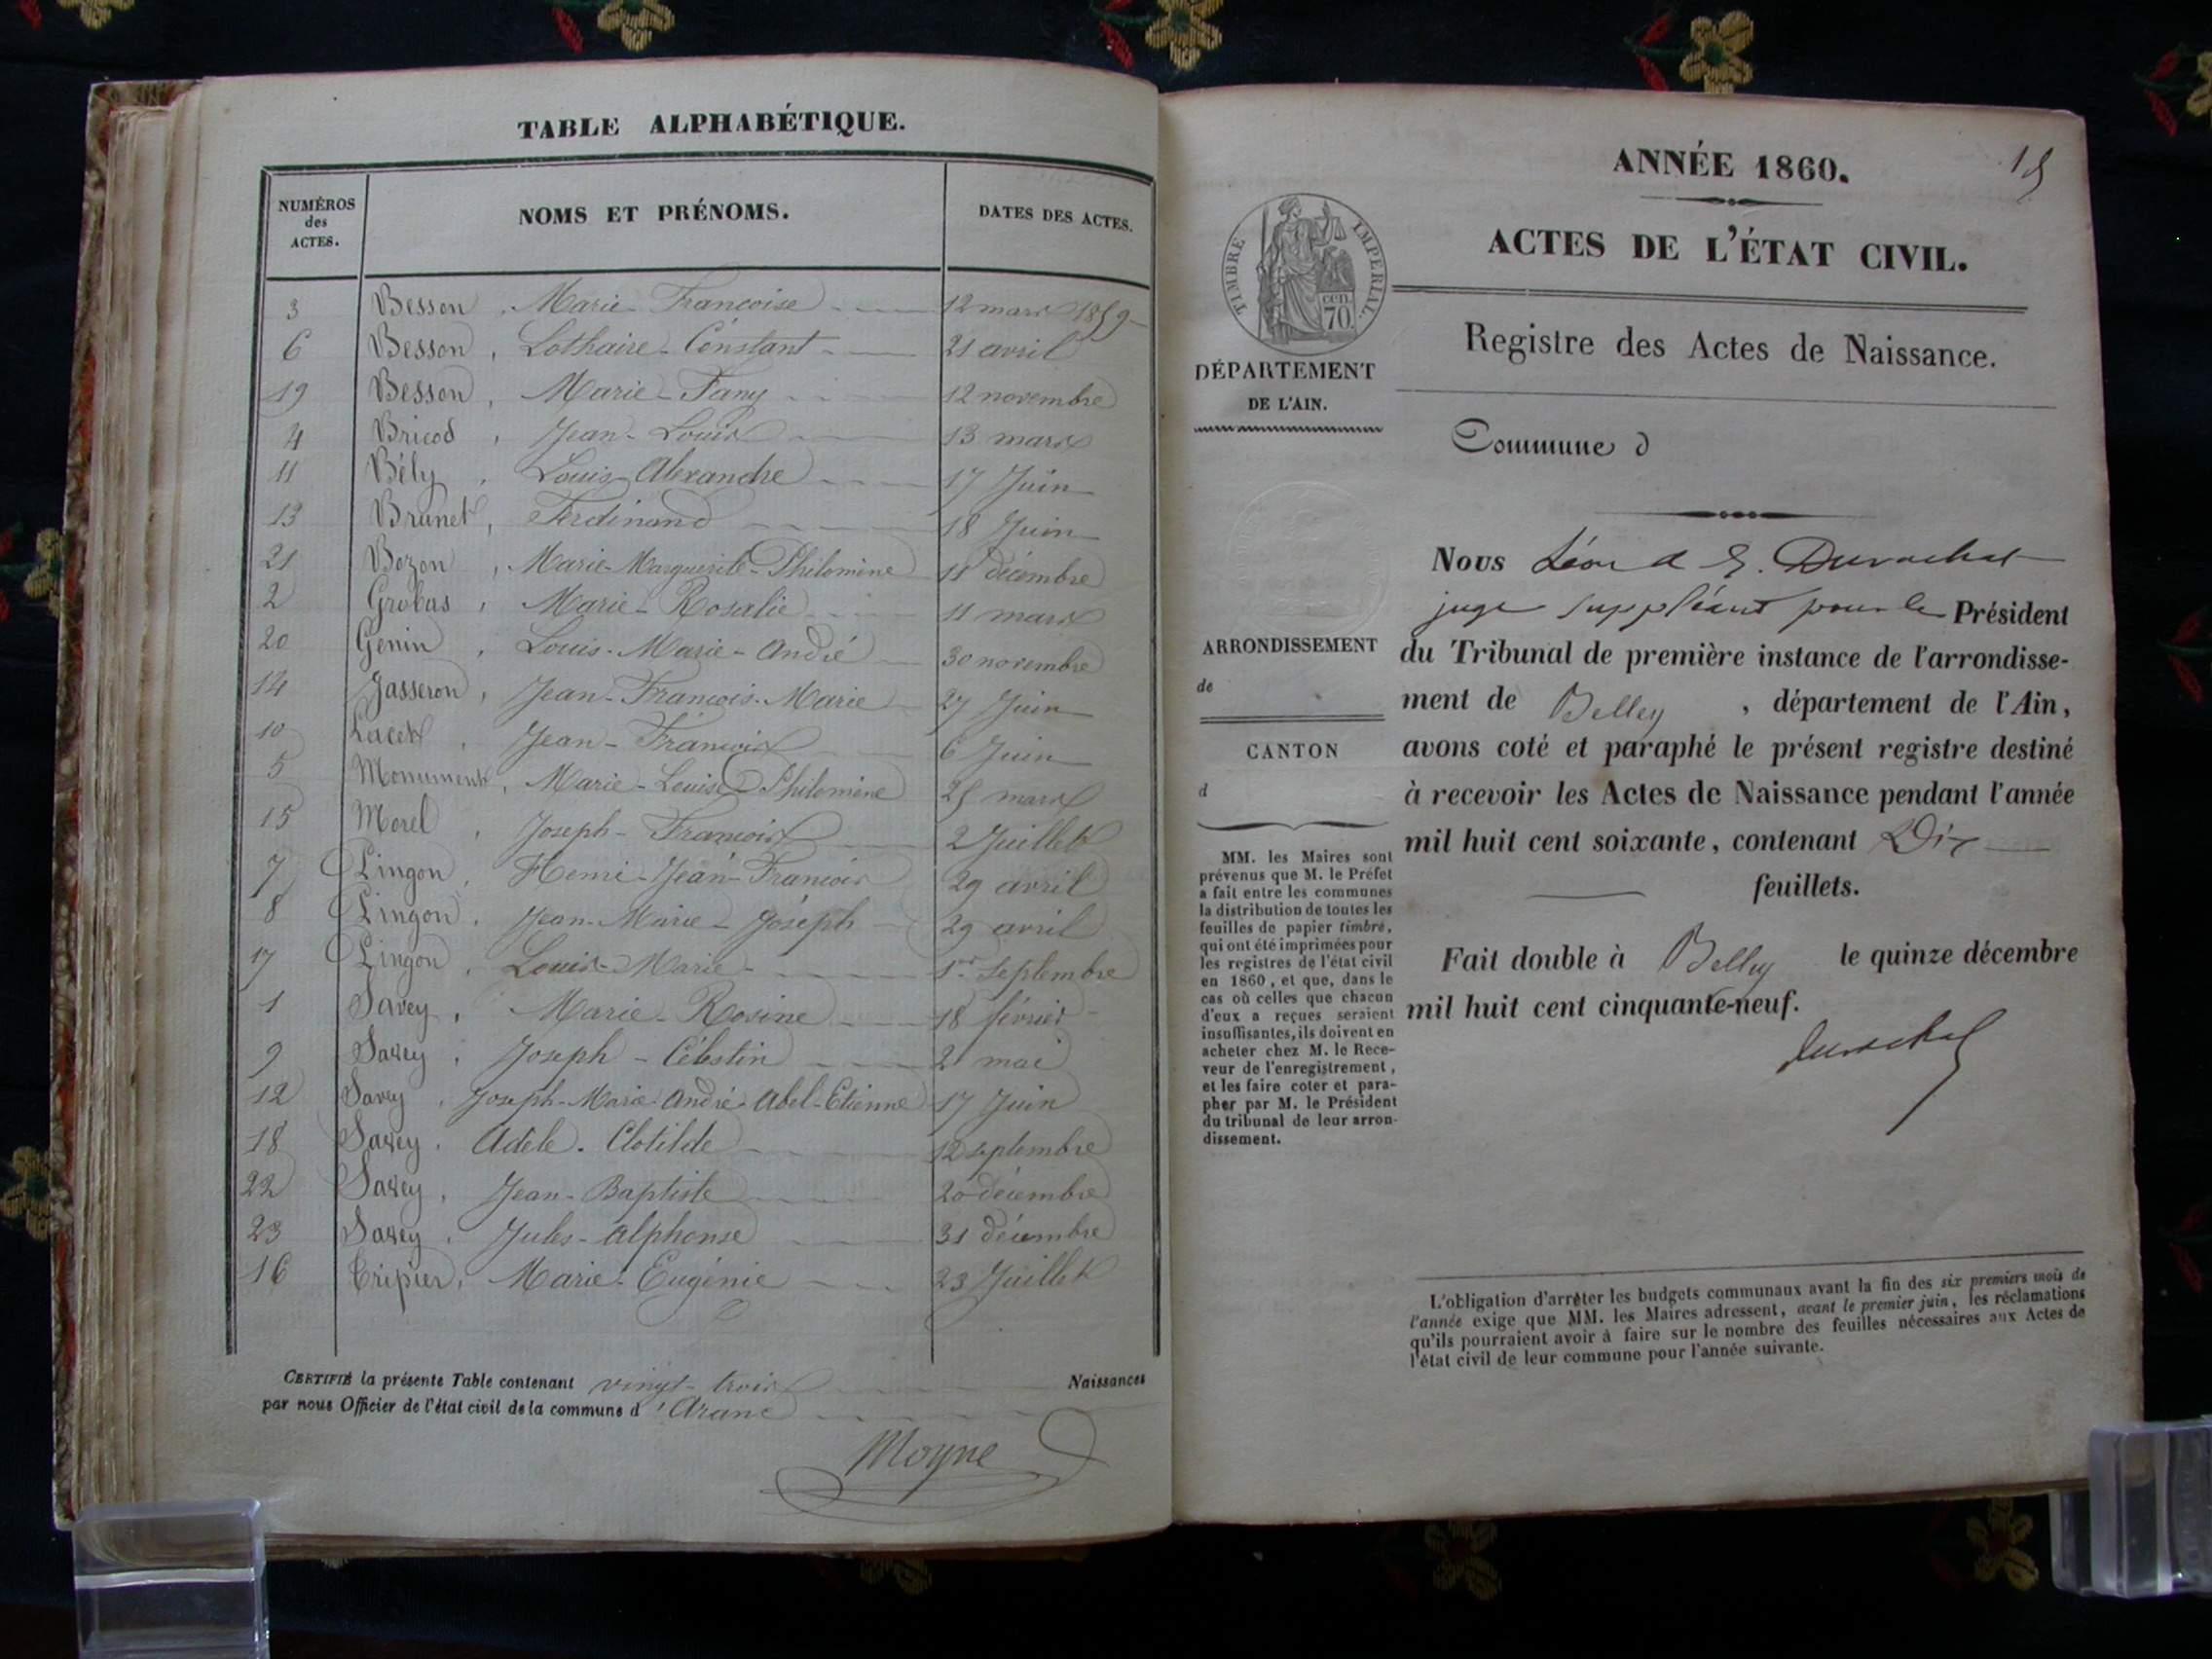 TABLE ALPHABÉTIQUE.
NUMÉROS des ACTES.
NOMS ET PRÉNOMS.
DATES DES ACTES.
3 Besson, Marie-Francoise 12 mars 1859
6 Besson, Lothaire-Constant 21 avril
19 Besson, Marie-Fany 12 novembre
4 Bricod, Jean-Louis 13 mars
11 Bély, Louis-Alexandre 17 Juin
13 Brunet, Ferdinand 18 Juin
21 Bozon, Marie-Marguerite-Philomène 11 décembre
2 Grobas, Marie-Rosalie 11 mars
20 Genin, Louis-Marie-André 30 novembre
14 Jasseron, Jean-Francois-Marie 27 Juin
10 Lacet, Jean-Francois 6 Juin
5 Monument, Marie-Louise Philomène 25 mars
15 Morel, Joseph-Francois 2 Juillet
7 Pingon, Henri-Jean-Francois 29 avril
8 Pingon, Jean-Marie-Joseph 29 avril
17 Pingon, Louis-Marie 1er septembre
1 Savey, Marie-Rosine 18 février
9 Savey, Joseph-Célestin 21 mai
12 Savey, Joseph-Marie-André-Abel-Etienne 17 Juin
18 Savey, Adèle-Clotilde 12 septembre
22 Savey, Jean-Baptiste 20 décembre
23 Savey, Jules-Alphonse 31 décembre
16 Tripier, Marie-Eugénie 23 Juillet
CERTIFIÉ la présente Table contenant vingt-trois Naissances
par nous Officier de l'état civil de la commune d'Aranc
Moyne
15
ANNÉE 1860.
ACTES DE L'ÉTAT CIVIL.
Registre des Actes de Naissance.
TIMBRE IMPÉRIAL.
cen. 70.
DÉPARTEMENT
DE L'AIN.
Commune d
Nous Léon d S. Durochat
juge suppléant pour le Président
du Tribunal de première instance de l'arrondisse-
ment de Belley, département de l'Ain,
avons coté et paraphé le présent registre destiné
à recevoir les Actes de Naissance pendant l'année
mil huit cent soixante, contenant Dix
feuillets.
Fait double à Belley le quinze décembre
mil huit cent cinquante-neuf.
Durochat
ARRONDISSEMENT
de
CANTON
d
MM. les Maires sont
prévenus que M. le Préfet
a fait entre les communes
la distribution de toutes les
feuilles de papier timbré,
qui ont été imprimées pour
les registres de l'état civil
en 1860, et que, dans le
cas où celles que chacun
d'eux a reçues seraient
insuffisantes, ils doivent en
acheter chez M. le Rece-
veur de l'enregistrement,
et les faire coter et para-
pher par M. le Président
du tribunal de leur arron-
dissement.
L'obligation d'arrêter les budgets communaux avant la fin des six premiers mois de
l'année exige que MM. les Maires adressent, avant le premier juin, les réclamations
qu'ils pourraient avoir à faire sur le nombre des feuilles nécessaires aux Actes de
l'état civil de leur commune pour l'année suivante.